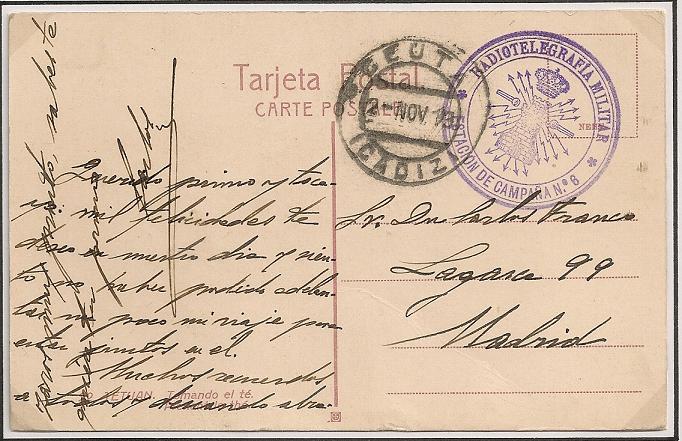 Tarjeta Postal
CARTE POSTALE
CEUTA
2 - NOV
(CADIZ)
RADIOTELEGRAFÍA MILITAR
ESTACIÓN DE CAMPAÑA N.º 6
Querido primo y toca
yo: mil felicidades te
deseo en nuestro dia y sien
to no haber podido adelan
tar un poco mi viaje para
estar juntos en el.
Muchos recuerdos
a todos y deseando abra
zaros
primo
Carlos
Sr. Dn Carlos Franco
Lagasca 99
Madrid
TETUAN. Tomando el té.